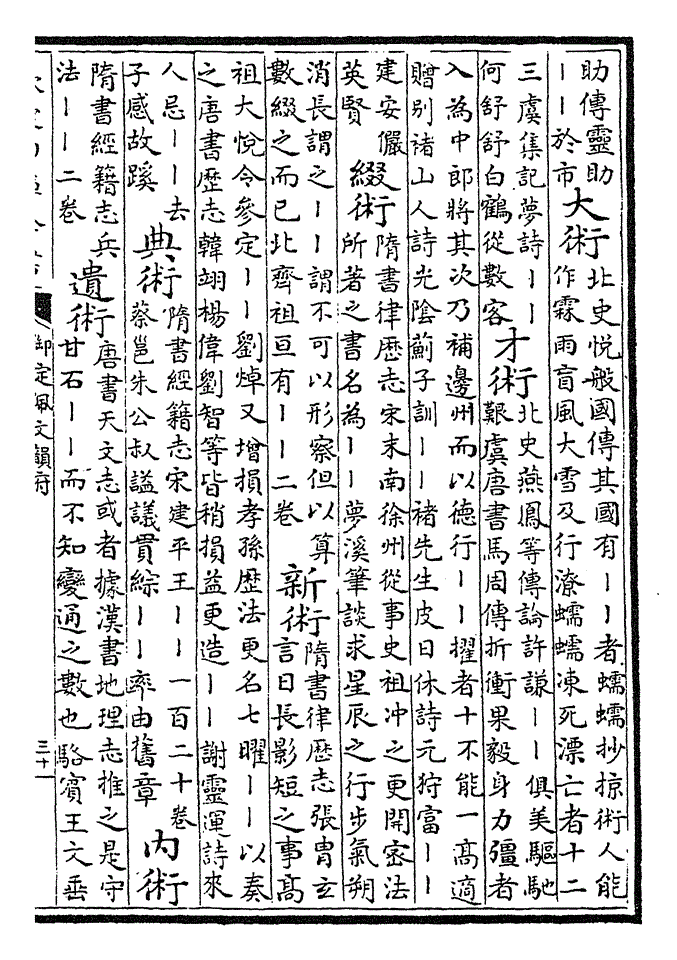 助傳靈助
丨丨於市
大術
北史悦般國傳其國有丨丨者蠕蠕抄掠術人能
作霖雨盲風大雪及行潦蠕蠕凍死漂亡者十二
三虞集記夢詩丨丨
何舒舒白鶴從數客
才術
北史燕鳳等傳論許謙丨丨俱美驅馳
艱虞唐書馬周傳折衝果毅身力彊者
入為中郎將其次乃補邊州而以德行丨丨擢者十不能一髙適
贈别禇山人詩光陰薊子訓丨丨禇先生皮日休詩元狩富丨丨
建安儷
英賢
綴術
隋書律歴志宋末南徐州從事史祖冲之更開宻法
所著之書名為丨丨夢溪筆談求星辰之行步氣朔
消長謂之丨丨謂不可以形察但以算
數綴之而已北齊祖亘有丨丨二卷
新術
隋書律歴志張胄玄
言日長影短之事髙
祖大悦令參定丨丨劉焯又增損孝孫歴法更名七曜丨丨以奏
之唐書歴志韓翊楊偉劉智等皆稍損益更造丨丨謝靈運詩來
人忌丨丨去
子感故蹊
典術
隋書經籍志宋建平王丨丨一百二十卷
蔡邕朱公叔謚議貫綜丨丨率由舊章
内術
隋書經籍志兵
法丨丨二卷
遺術
唐書天文志或者據漢書地理志推之是守
甘石丨丨而不知變通之數也駱賓王文垂
御定佩文韻府